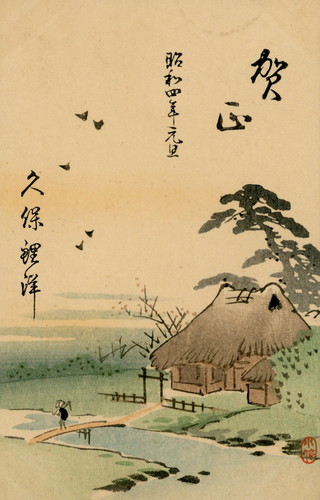 賀正
昭和四年元旦
久保